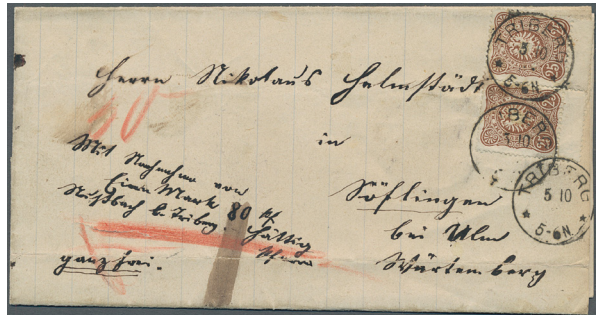 TRIBERG
5 10
5-6N
Herrn Nikolaus Helmstädt
in
Söflingen
bei Ulm
Würtemberg
Mit Nachnahme von
Einer Mark 80 Pf
Nußbach b. Triberg. Hättig
ganz frei.
TRIBERG
5 10
5-6N